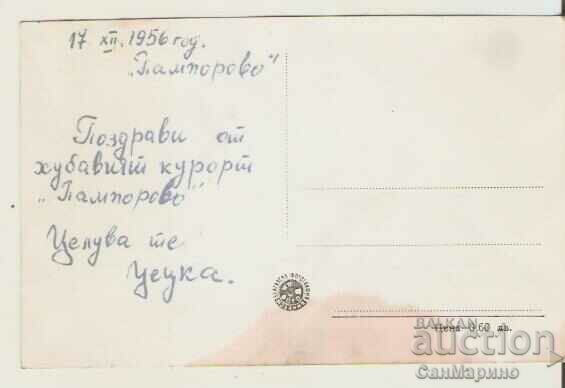 17 XII. 1956 год.
„Пампорово"
Поздрави от
хубавият курорт
„Пампорово"
Целува те
Цецка.
Цена 0·60 лв.
BALKAN
auction
СанМарино